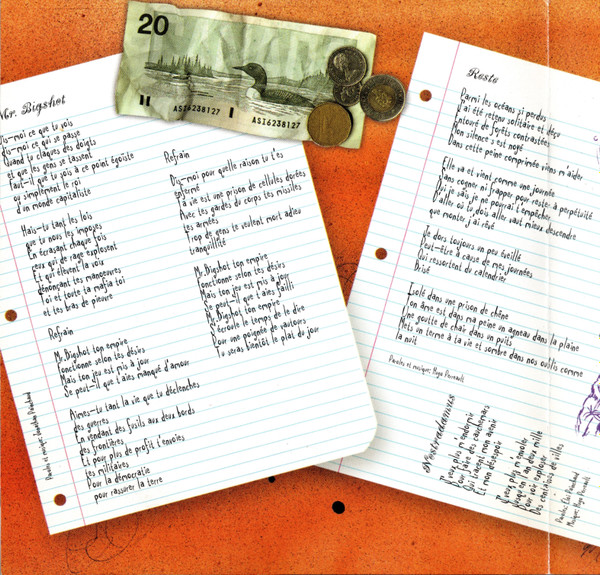 20
ASI6238127
ASI6238127
Mr. Bigshot
Dis-moi ce que tu vois
Dis-moi ce qui se passe
Quand tu claques des doigts
et que les gens se tassent
Faut-il que tu sois à ce point égoïste
ou simplement le roi
d'un monde capitaliste
Hais-tu tant les lois
que tu nous les imposes
En écrasant chaque fois
ceux qui de rage explosent
Et qui élèvent la voix
Dénonçant tes manoeuvres
Toi et toute ta mafia toi
et tes bras de pieuvre
Refrain
Mr. Bigshot ton empire
Fonctionne selon tes désirs
Mais ton jeu est mis à jour
Se peut-il que t'aies manqué d'amour
Aimes-tu tant la vie que tu déclenches
des guerres
En vendant des fusils aux deux bords
des frontières
Et pour plus de profit t'envoies
tes militaires
Pour la démocratie
pour rassurer la terre
Refrain
Dis-moi pour quelle raison tu t'es
enfermé
Ta vie est une prison de cellules dorées
Avec tes gardes du corps tes missiles
tes armées
Trop de gens te veulent mort adieu
tranquillité
Mr. Bigshot ton empire
Fonctionne selon tes désirs
Mais ton jeu est mis à jour
Se peut-il que t'aies failli
Mr. Bigshot ton empire
S'écroule le temps de le dire
Pour une poignée de vautours
Tu seras bientôt le plat du jour
Reste
Parmi les océans j'ai perdus
J'ai été retenu solitaire et déçu
Entouré de forêts contrastées
Mon silence s'est noyé
Dans cette peine comprimée viens m'aider
Elle va et vient comme une journée
Sans cogner ni frapper pour rester à perpétuité
Si j'savais je ne pourrai l'empêcher
D'aller où j'dois aller vaut mieux descendre
que monter j'ai rêvé
Je dors toujours un peu éveillé
Peut-être à cause de mes journées
Qui ressortent du calendrier
Brisé
Isolé dans une prison de chêne
Ton âme est dans ma peine un agneau dans la plaine
Une goutte de chair dans un puits
Mets un terme à ta vie et sombre dans nos outils comme
la nuit
Paroles et musique: Hugo Perreault
Nostradamus
J'veux plus m'endormir
Pour faire des cauchemars
Qui tracent mon avenir
Et mon désespoir
J'veux plus m'envoler
Jusqu'en l'an deux mille
Pour voir exploser
Des centaines de villes